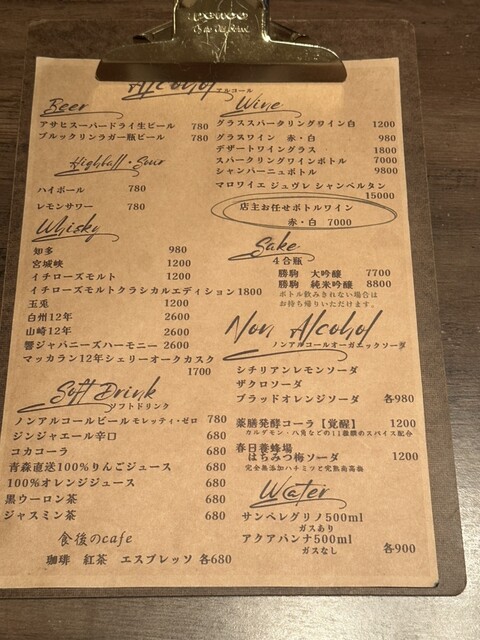 Alcohol アルコール
Beer
アサヒスーパードライ生ビール 780
ブルックリンラガー瓶ビール 780
Highball・Sour
ハイボール 780
レモンサワー 780
Whisky
知多 980
宮城峡 1200
イチローズモルト 1200
イチローズモルトクラシカルエディション 1800
玉兎 1200
白州12年 2600
山崎12年 2600
響ジャパニーズハーモニー 2600
マッカラン12年シェリーオークカスク
1700
Soft Drink
ソフトドリンク
ノンアルコールビール モレッティ・ゼロ 780
ジンジャエール辛口 680
コカコーラ 680
青森直送100%りんごジュース 680
100%オレンジジュース 680
黒ウーロン茶 680
ジャスミン茶 680
食後のcafe
珈琲 紅茶 エスプレッソ 各680
Wine
グラススパークリングワイン白 1200
グラスワイン 赤・白 980
デザートワイングラス 1800
スパークリングワインボトル 7000
シャンパーニュボトル 9800
マロワイエ ジュヴレ シャンベルタン
15000
店主お任せボトルワイン
赤・白 7000
Sake
4合瓶
勝駒 大吟醸 7700
勝駒 純米吟醸 8800
ボトル飲みきれない場合は
お持ち帰りいただけます。
Non Alcohol
ノンアルコールオーガニックソーダ
シチリアンレモンソーダ
ザクロソーダ
ブラッドオレンジソーダ 各980
薬膳発酵コーラ【覚醒】 1200
カルダモン・八角などの11種類のスパイス配合
春日養蜂場
はちみつ梅ソーダ 1200
完全無添加ハチミツと完熟南高梅
Water
サンペレグリノ500ml
ガスあり
アクアパンナ500ml
ガスなし 各900